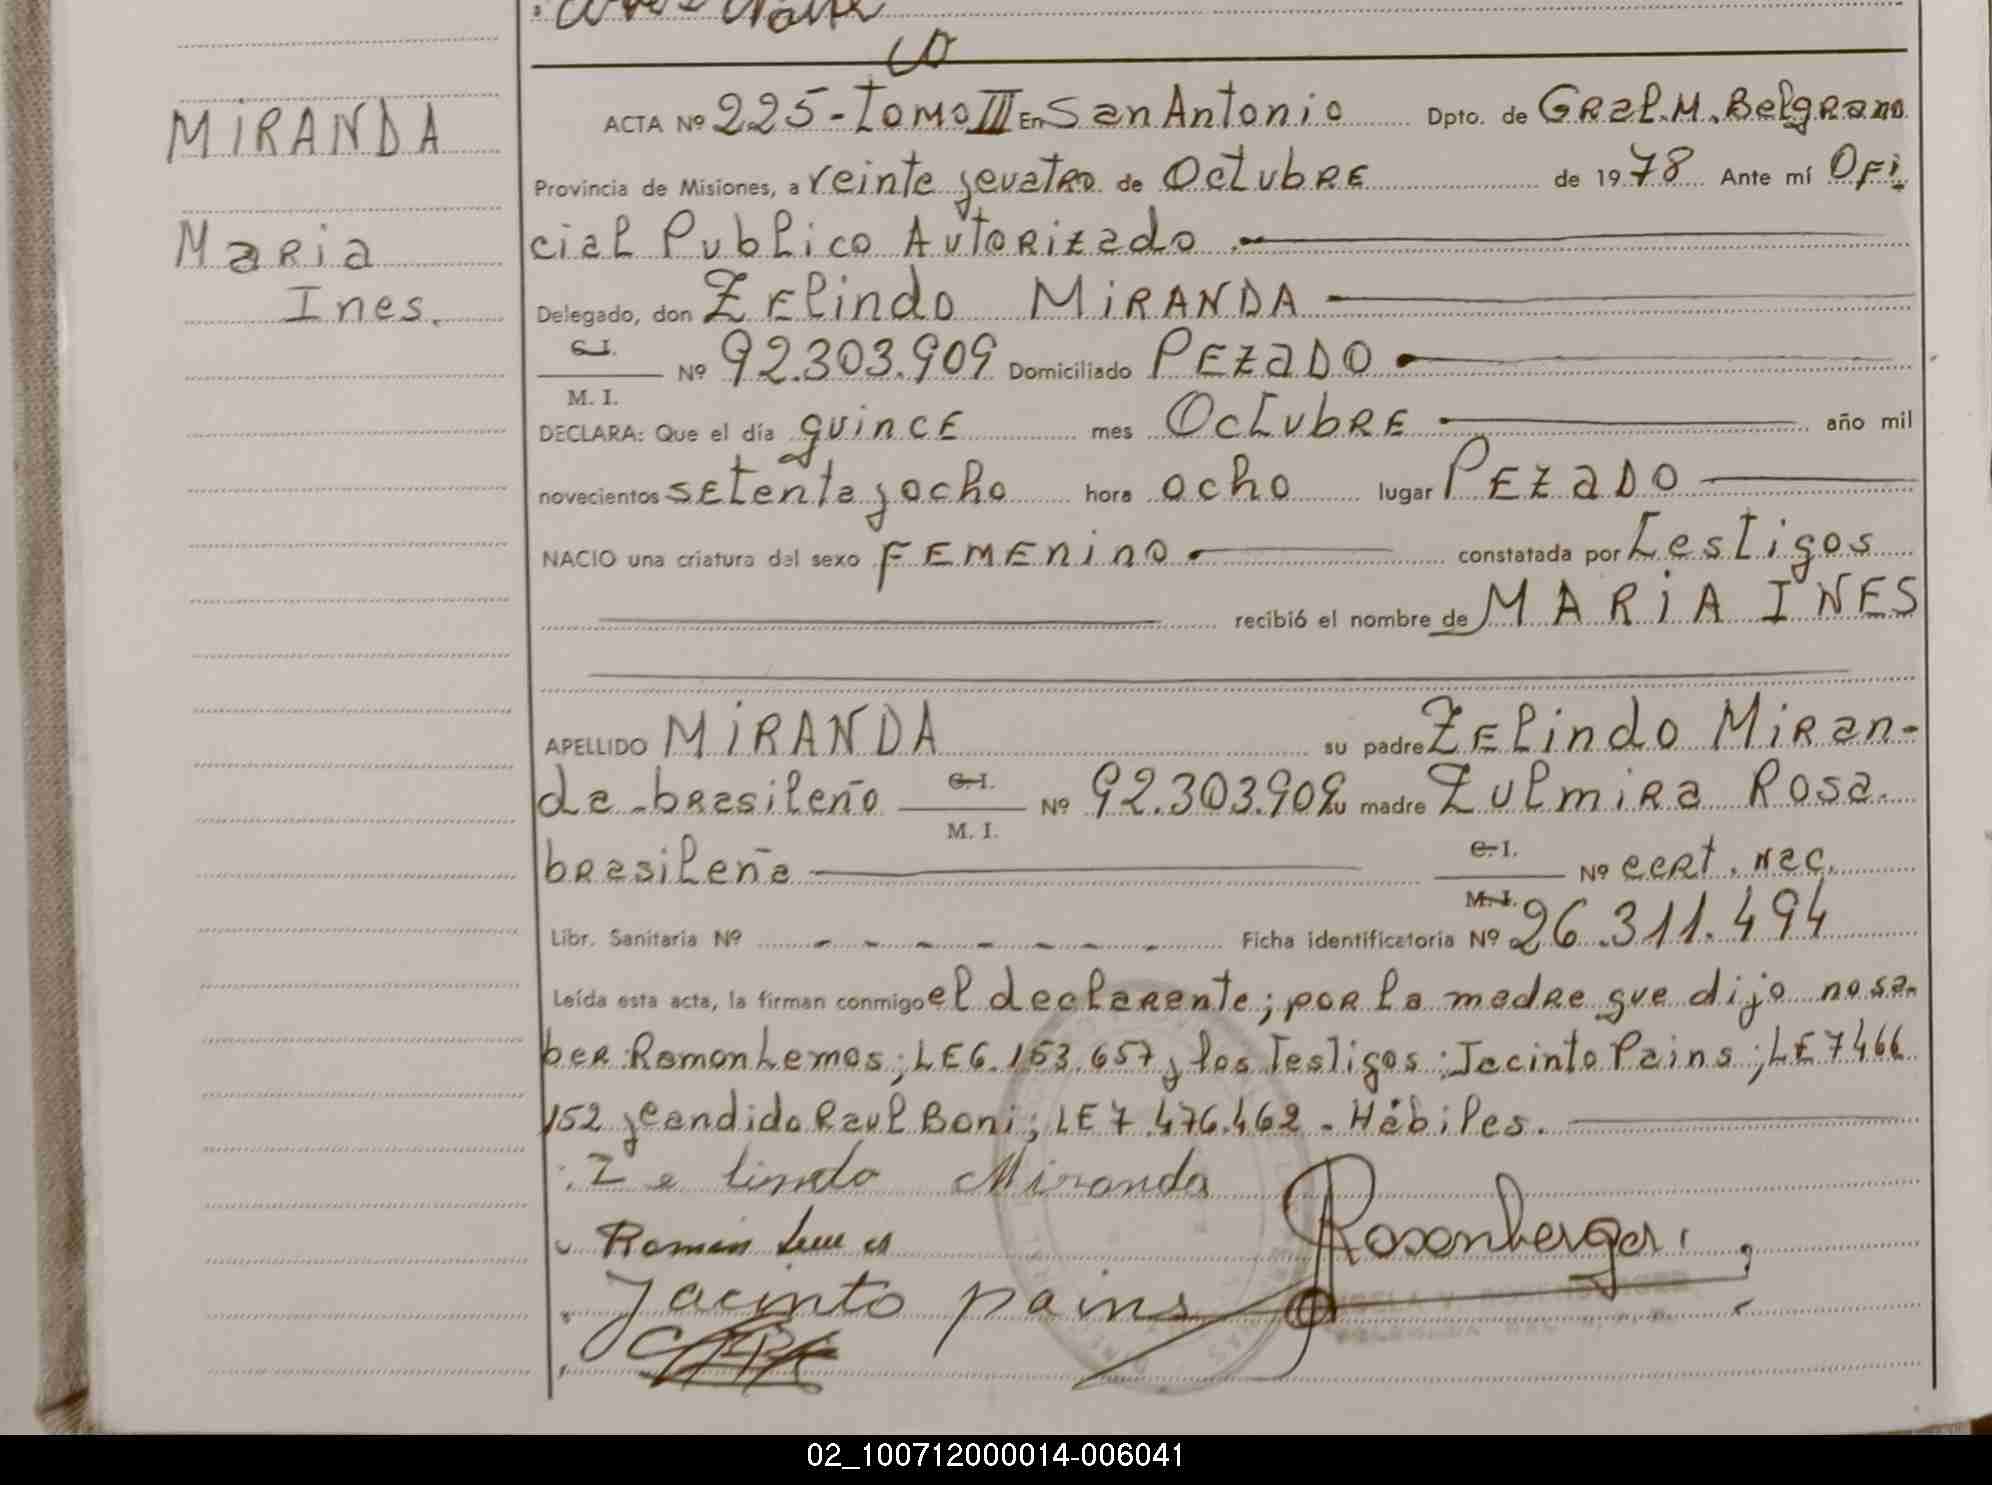 MIRANDA
Maria
Ines.
ACTA Nº 225-Tomo III En San Antonio Dpto. de GRal.M.Belgrano
Provincia de Misiones, a veinte y cuatro de Octubre de 1978 Ante mí Ofi
cial Publico Autorizado
Delegado, don Zelindo MIRANDA
C.I.
M. I. Nº 92.303.909 Domiciliado Pezado
DECLARA: Que el día quince mes Octubre año mil
novecientos setenta y ocho hora ocho lugar Pezado
NACIO una criatura del sexo femenino constatada por testigos
recibió el nombre de MARIA INES
APELLIDO MIRANDA su padre Zelindo Miran-
da-brasileño C.I. M. I. Nº 92.303.909 su madre Zulmira Rosa.
brasileña C.I. M.I. Nº cert. nac.
Libr. Sanitaria Nº - - - - - - Ficha identificatoria Nº 26.311.494
Leída esta acta, la firman conmigo el declarante; por la madre que dijo no sa-
ber:Ramon Lemos; LE6.153.657 y los Testigos:Jacinto Pains; LE7466
152 y Candido Raul Boni; LE7.476.462 - Hábiles.
Zelindo Miranda
Ramón Lemes
Rosenberger
Jacinto pains
02_100712000014-006041